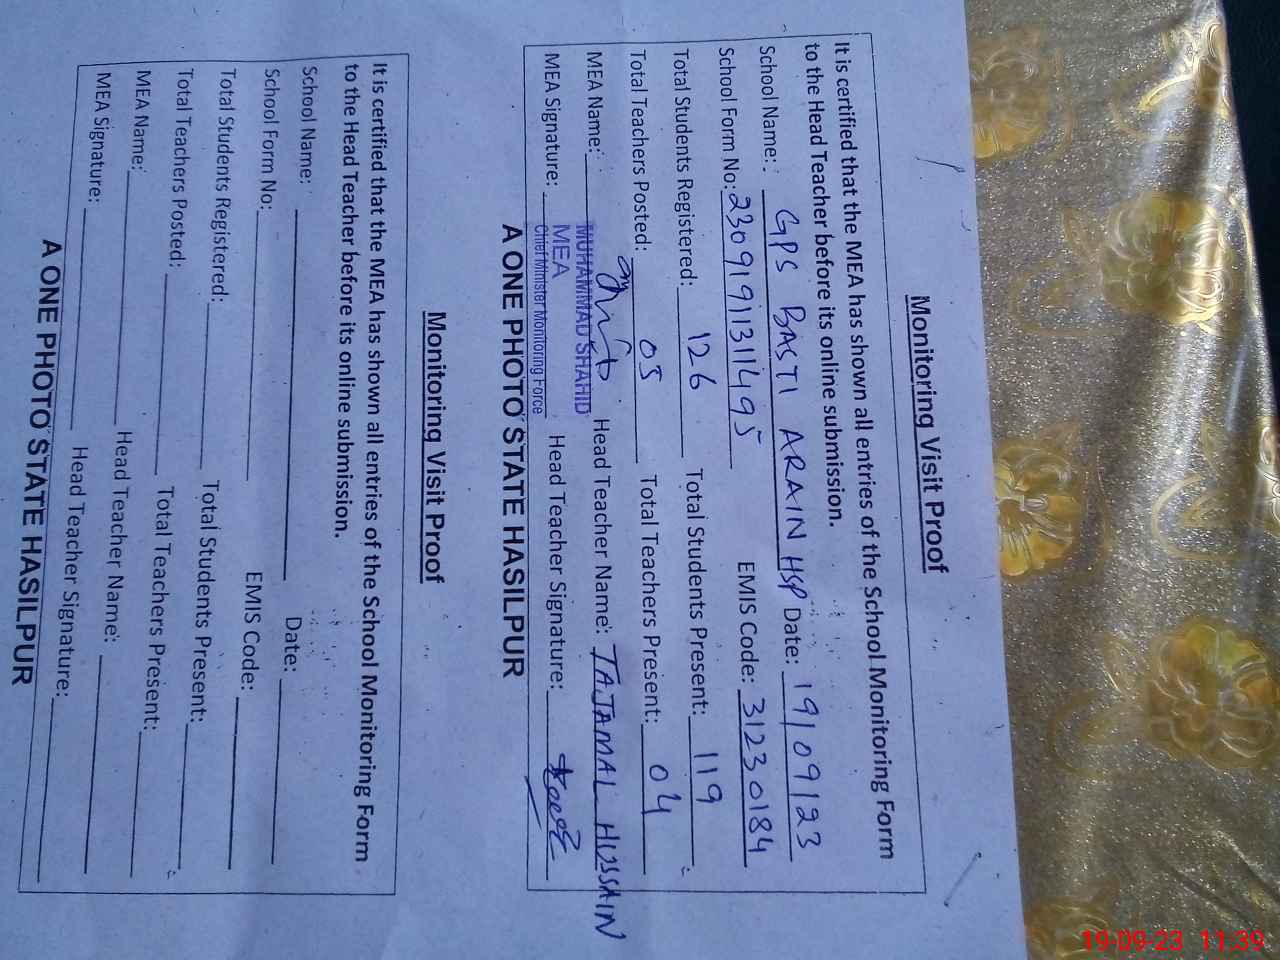 Monitoring Visit Proof
It is certified that the MEA has shown all entries of the School Monitoring Form
to the Head Teacher before its online submission.
School Name: GPS BASTI ARAIN HSP Date: 19/09/23
School Form No: 2309191131149​5 EMIS Code: 31230184
Total Students Registered: 126 Total Students Present: 119
Total Teachers Posted: 05 Total Teachers Present: 04
MEA Name: MUHAMMAD SHAHID Head Teacher Name: TAJAMAL HUSSAIN
MEA Signature: MEA Head Teacher Signature:
Chief Minister Monitoring Force
A ONE PHOTO STATE HASILPUR
Monitoring Visit Proof
It is certified that the MEA has shown all entries of the School Monitoring Form
to the Head Teacher before its online submission.
School Name: Date:
School Form No: EMIS Code:
Total Students Registered: Total Students Present:
Total Teachers Posted: Total Teachers Present:
MEA Name: Head Teacher Name:
MEA Signature: Head Teacher Signature:
A ONE PHOTO STATE HASILPUR
19-09-23 11:39